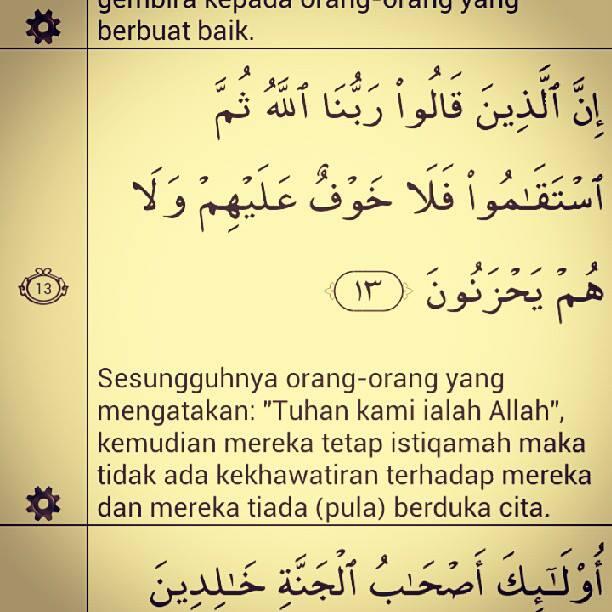 gembira kepada orang-orang yang
berbuat baik.
إِنَّ ٱلَّذِينَ قَالُوا۟ رَبُّنَا ٱللَّهُ ثُمَّ
ٱسْتَقَـٰمُوا۟ فَلَا خَوْفٌ عَلَيْهِمْ وَلَا
هُمْ يَحْزَنُونَ ١٣
13
Sesungguhnya orang-orang yang
mengatakan: "Tuhan kami ialah Allah",
kemudian mereka tetap istiqamah maka
tidak ada kekhawatiran terhadap mereka
dan mereka tiada (pula) berduka cita.
أُو۟لَـٰٓئِكَ أَصْحَـٰبُ ٱلْجَنَّةِ خَـٰلِدِينَ